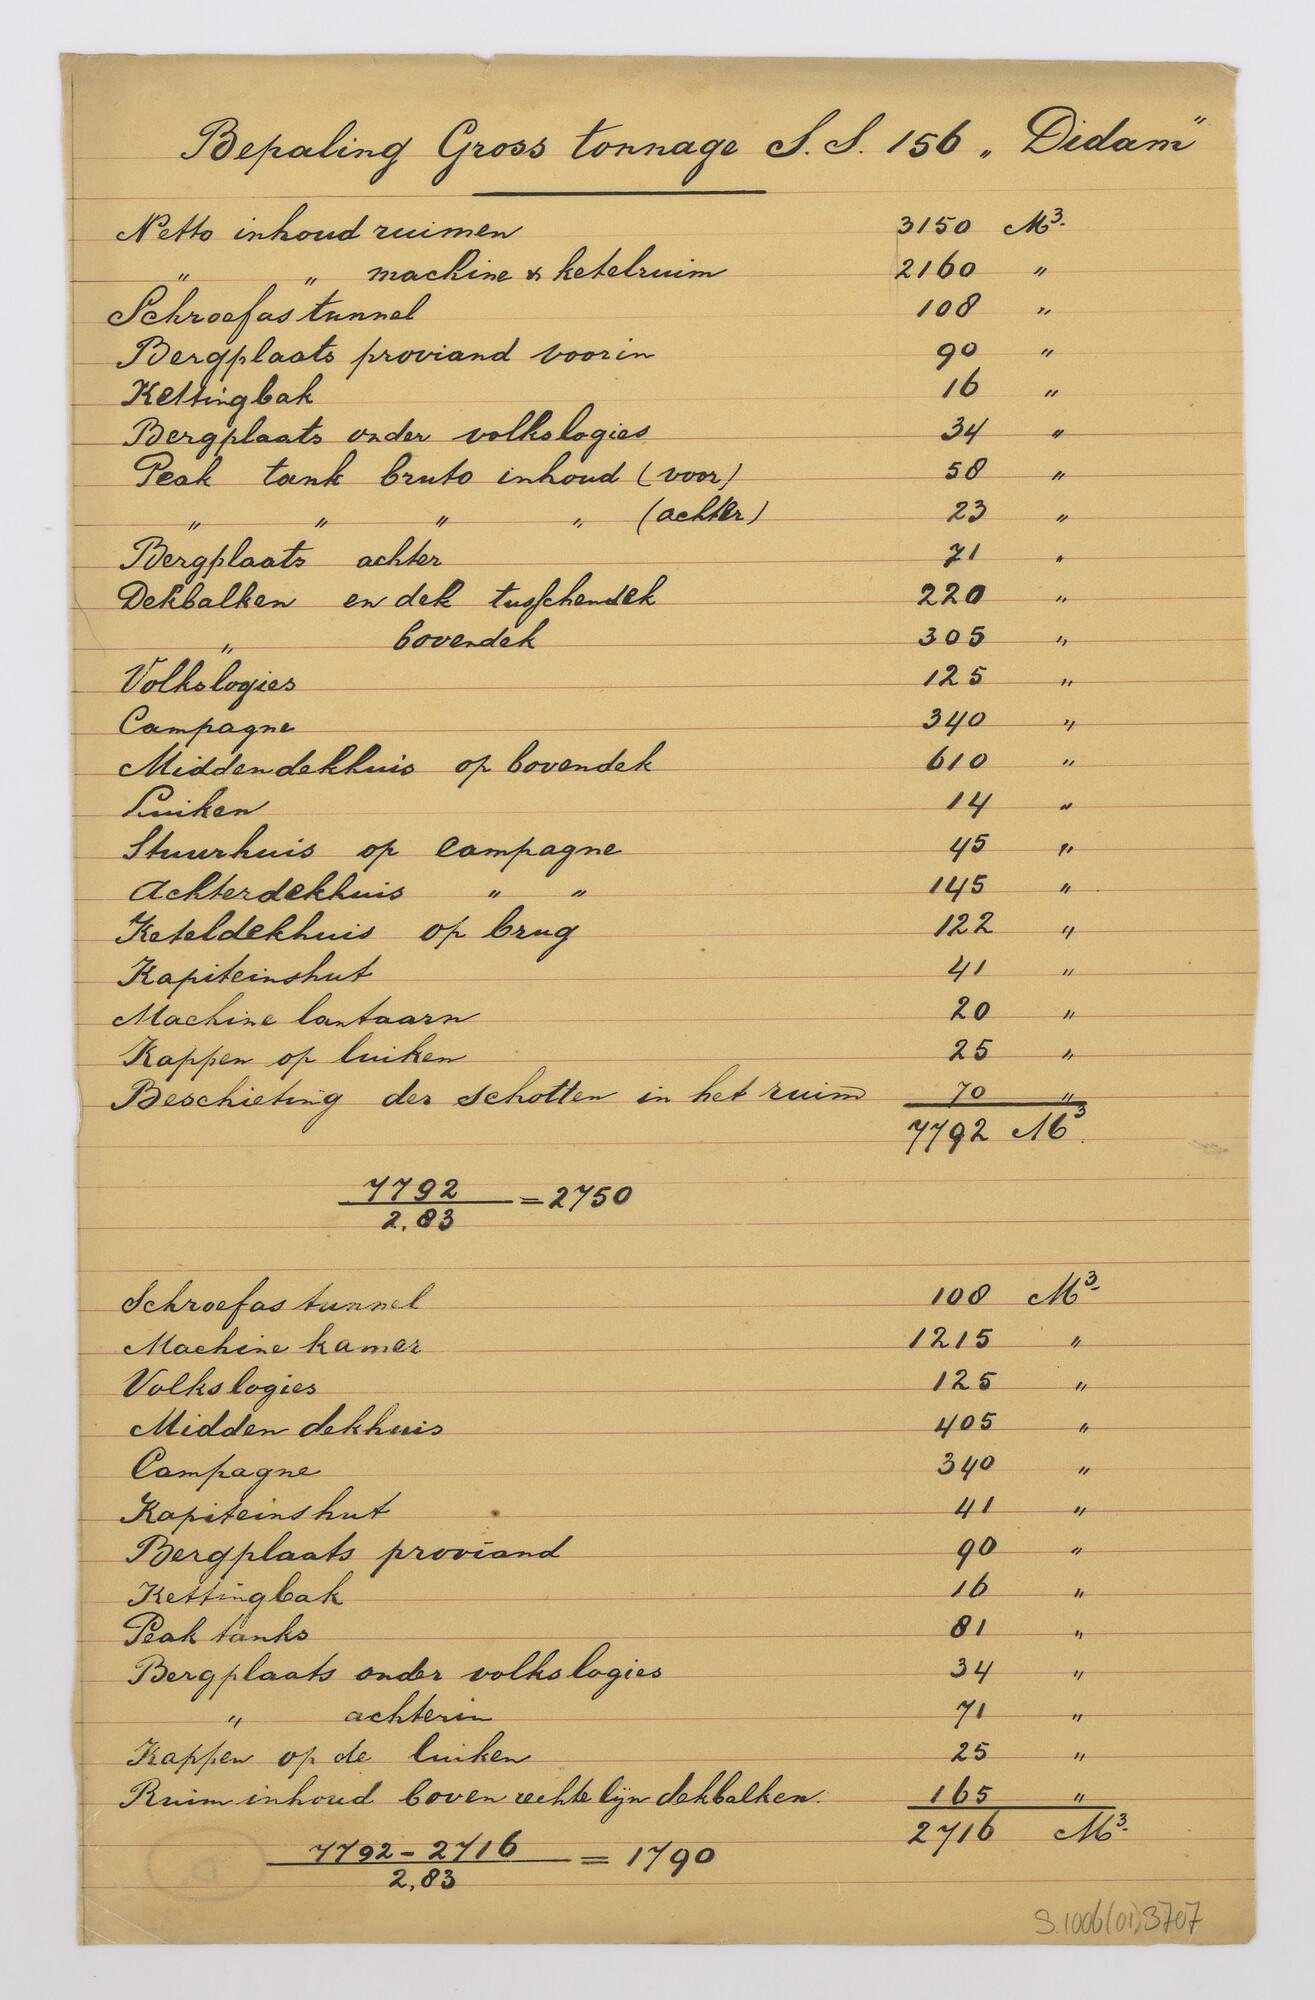 Bepaling Gross tonnage S.S. 156 „Didam"
Netto inhoud ruimen 3150 M³.
" " machine & ketelruim 2160 "
Schroefastunnel 108 "
Bergplaats proviand voorin 90 "
Kettingbak 16 "
Bergplaats onder volkslogies 34 "
Peak tank bruto inhoud (voor) 58 "
" " " " (achter) 23 "
Bergplaats achter 71 "
Dekbalken en dek tusschendek 220 "
" bovendek 305 "
Volkslogies 125 "
Campagne 340 "
Middendekhuis op bovendek 610 "
Luiken 14 "
Stuurhuis op campagne 45 "
Achterdekhuis " " 145 "
Keteldekhuis op brug 122 "
Kapiteinshut 41 "
Machine lantaarn 20 "
Kappen op luiken 25 "
Beschieting der schotten in het ruim 70 "
7792 M³.
7792
2,83
= 2750
Schroefastunnel 108 M³.
Machine kamer 1215 "
Volkslogies 125 "
Midden dekhuis 405 "
Campagne 340 "
Kapiteinshut 41 "
Bergplaats proviand 90 "
Kettingbak 16 "
Peak tanks 81 "
Bergplaats onder volkslogies 34 "
" achterin 71 "
Kappen op de luiken 25 "
Ruiminhoud boven rechte lijn dekbalken. 165 "
2716 M³.
7792 - 2716
2,83
= 1790
D.
S.1006(01)3707